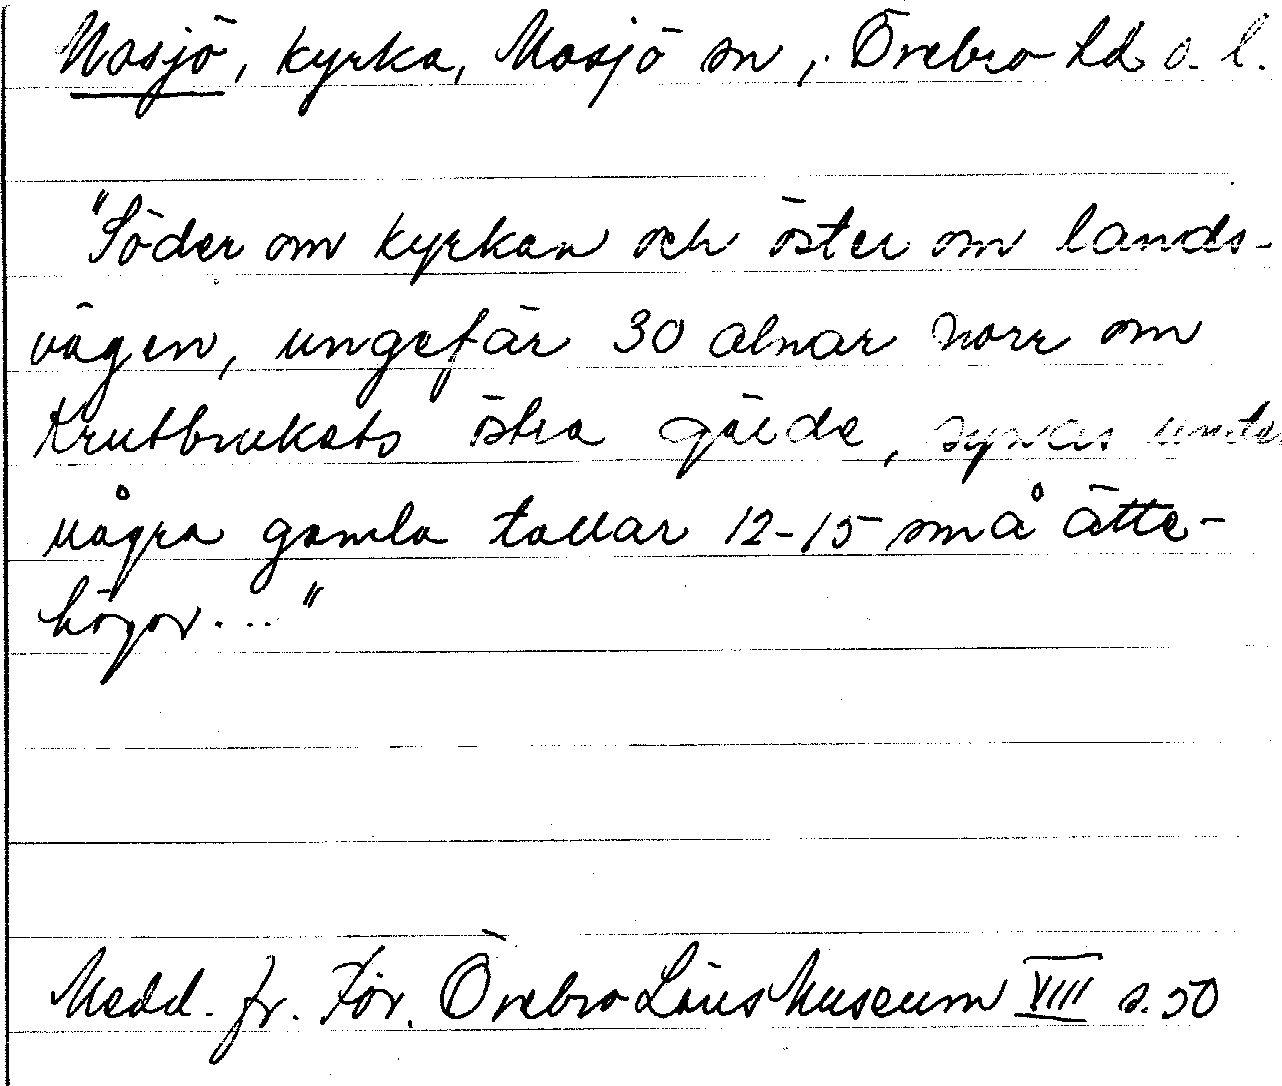 Mosjö, kyrka, Mosjö sn, Örebro hd o. l.
"Söder om kyrkan och öster om lands-
vägen, ungefär 30 alnar norr om
Krutbrukets östra gärde, synas under
några gamla tallar 12-15 små ätte-
högar..."
Medd. fr. För. Örebro Läns Museum VIII s. 50